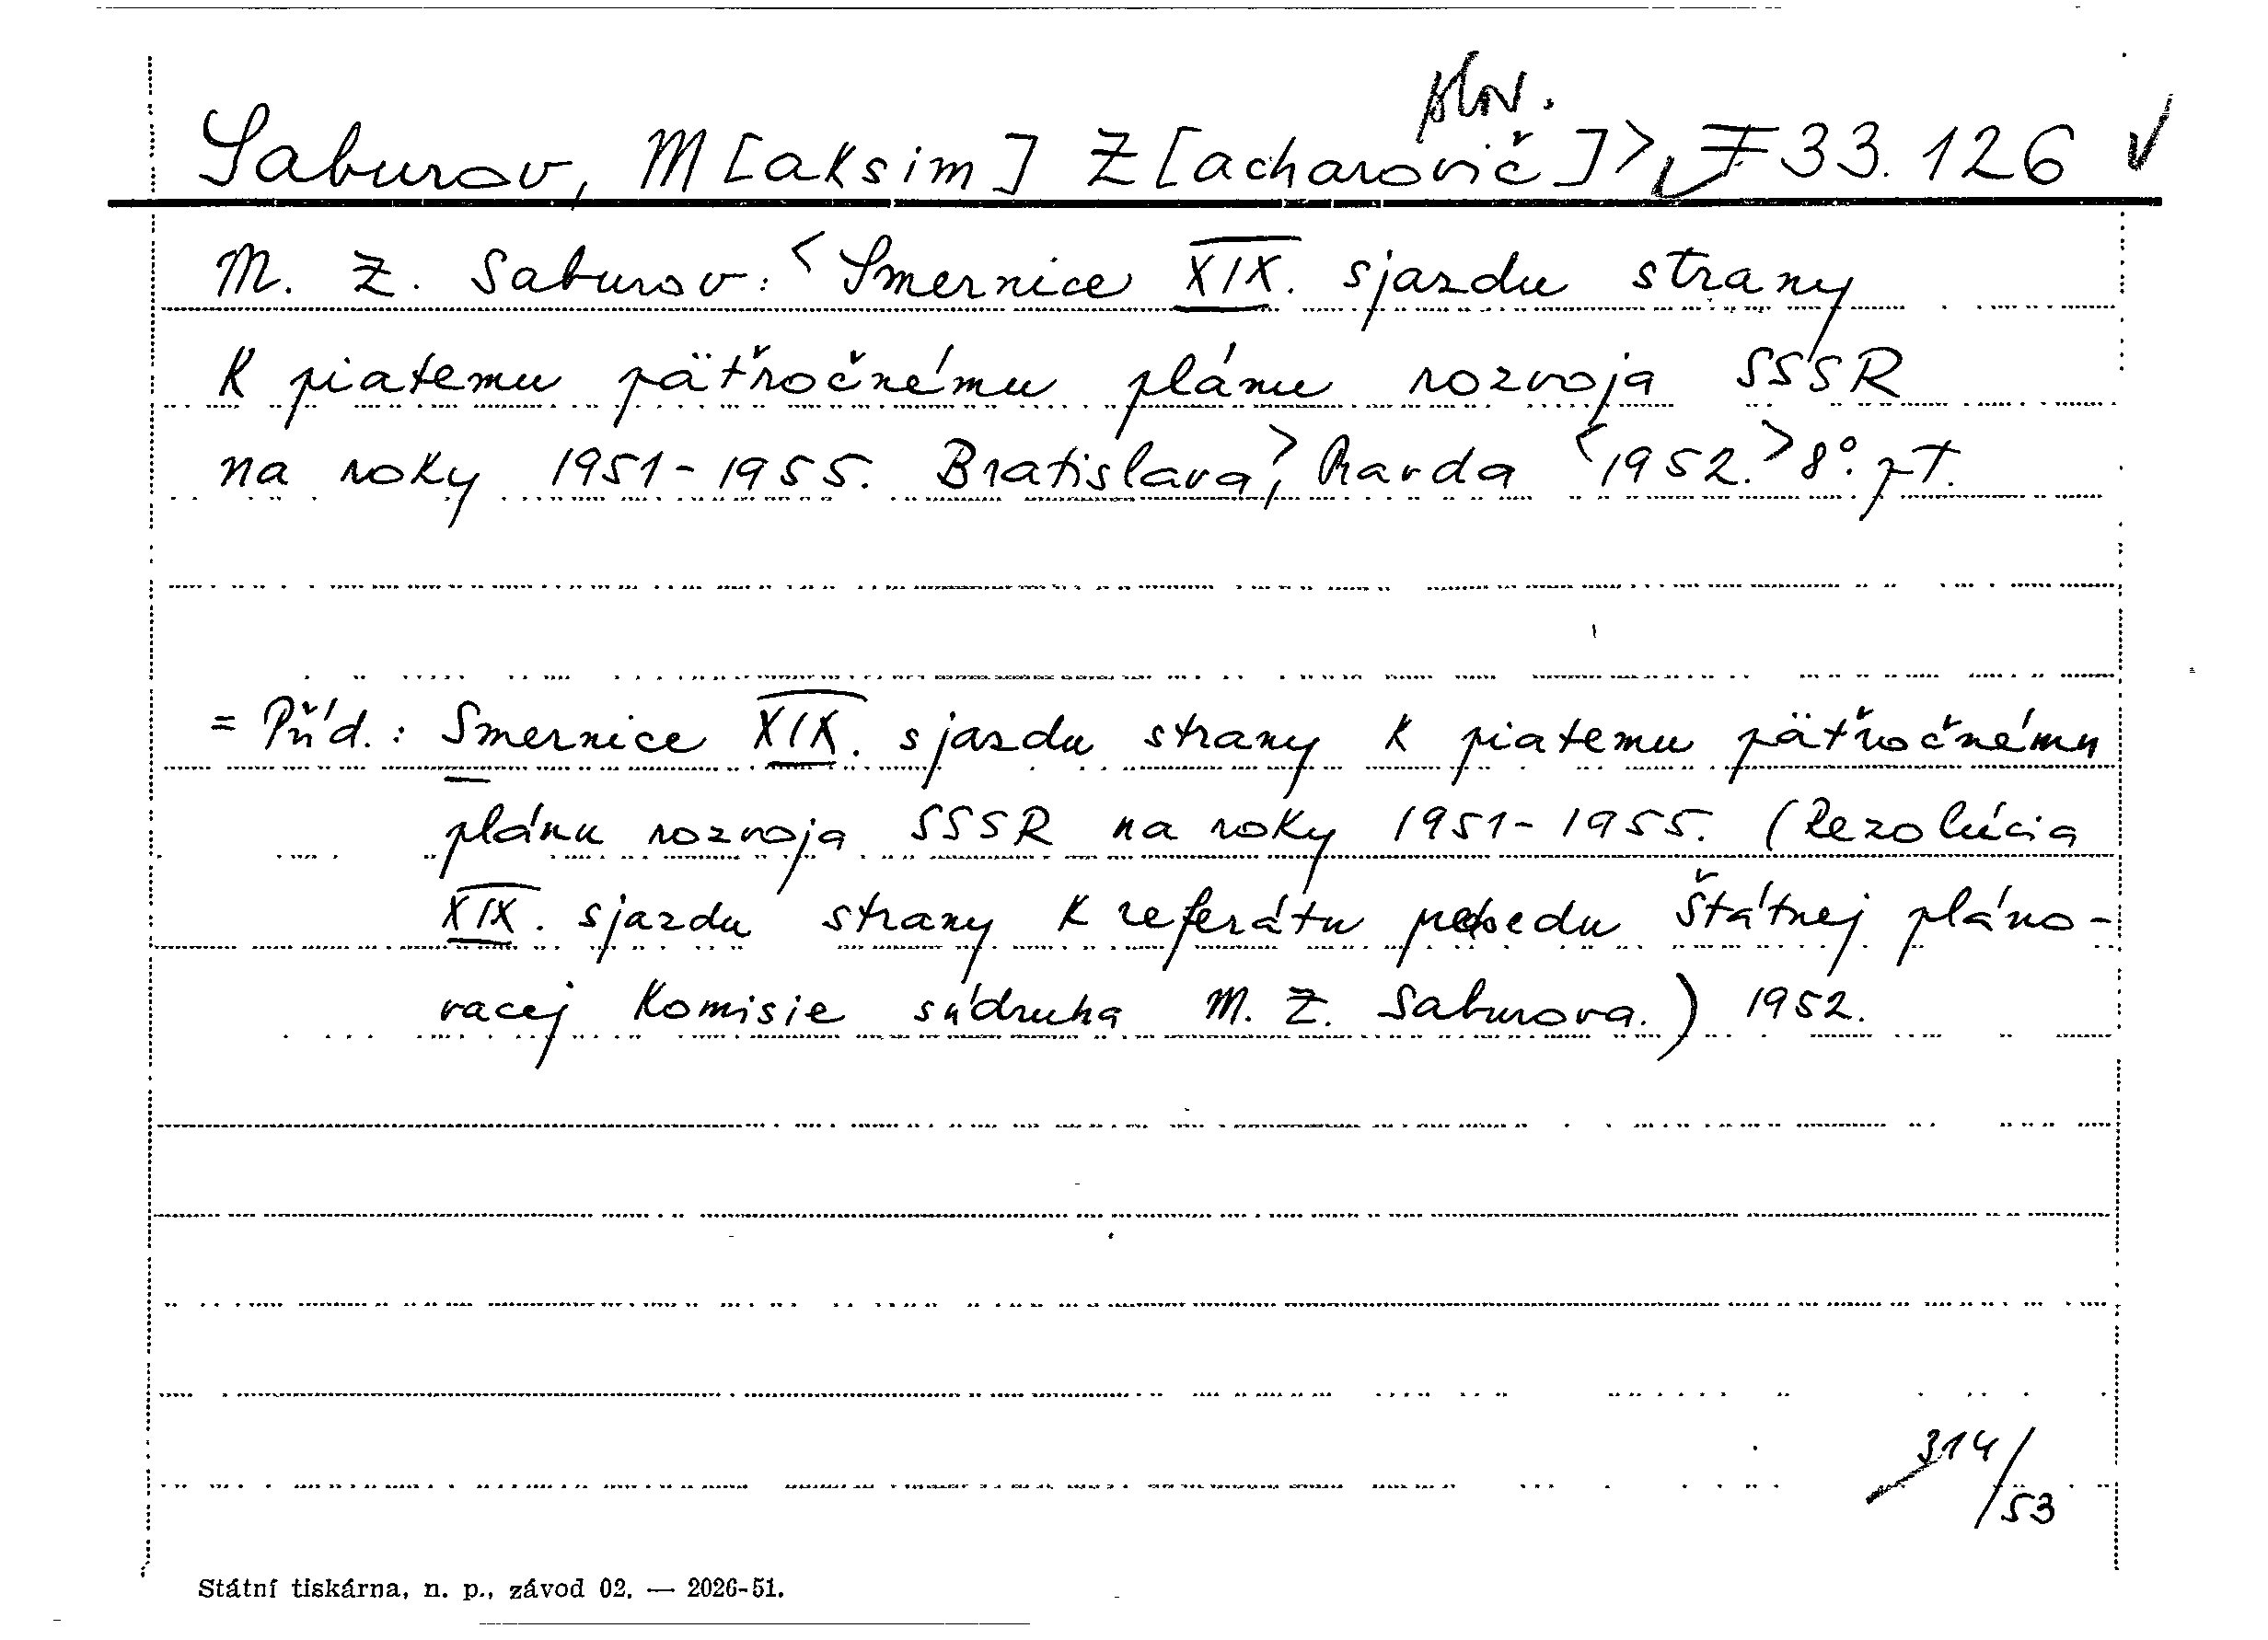 slov.
Saburov, M[aksim] Z[acharovič]> F 33.126 √
M. Z. Saburov: <Smernice XIX. sjazdu strany
k piatemu pätřočnému plánu rozvoja SSSR
na roky 1951-1955. Bratislava,> Pravda <1952.> 8°. pT.
= Příd.: Smernice XIX. sjazdu strany k piatemu pätřočnému
plánu rozvoja SSSR na roky 1951-1955. (Rezolúcia
XIX. sjazdu strany k referátu predsedu Štátnej pláno-
vacej komisie súdruha M. Z. Saburova.) 1952.
314/53
Státní tiskárna, n. p., závod 02. — 2026-51.